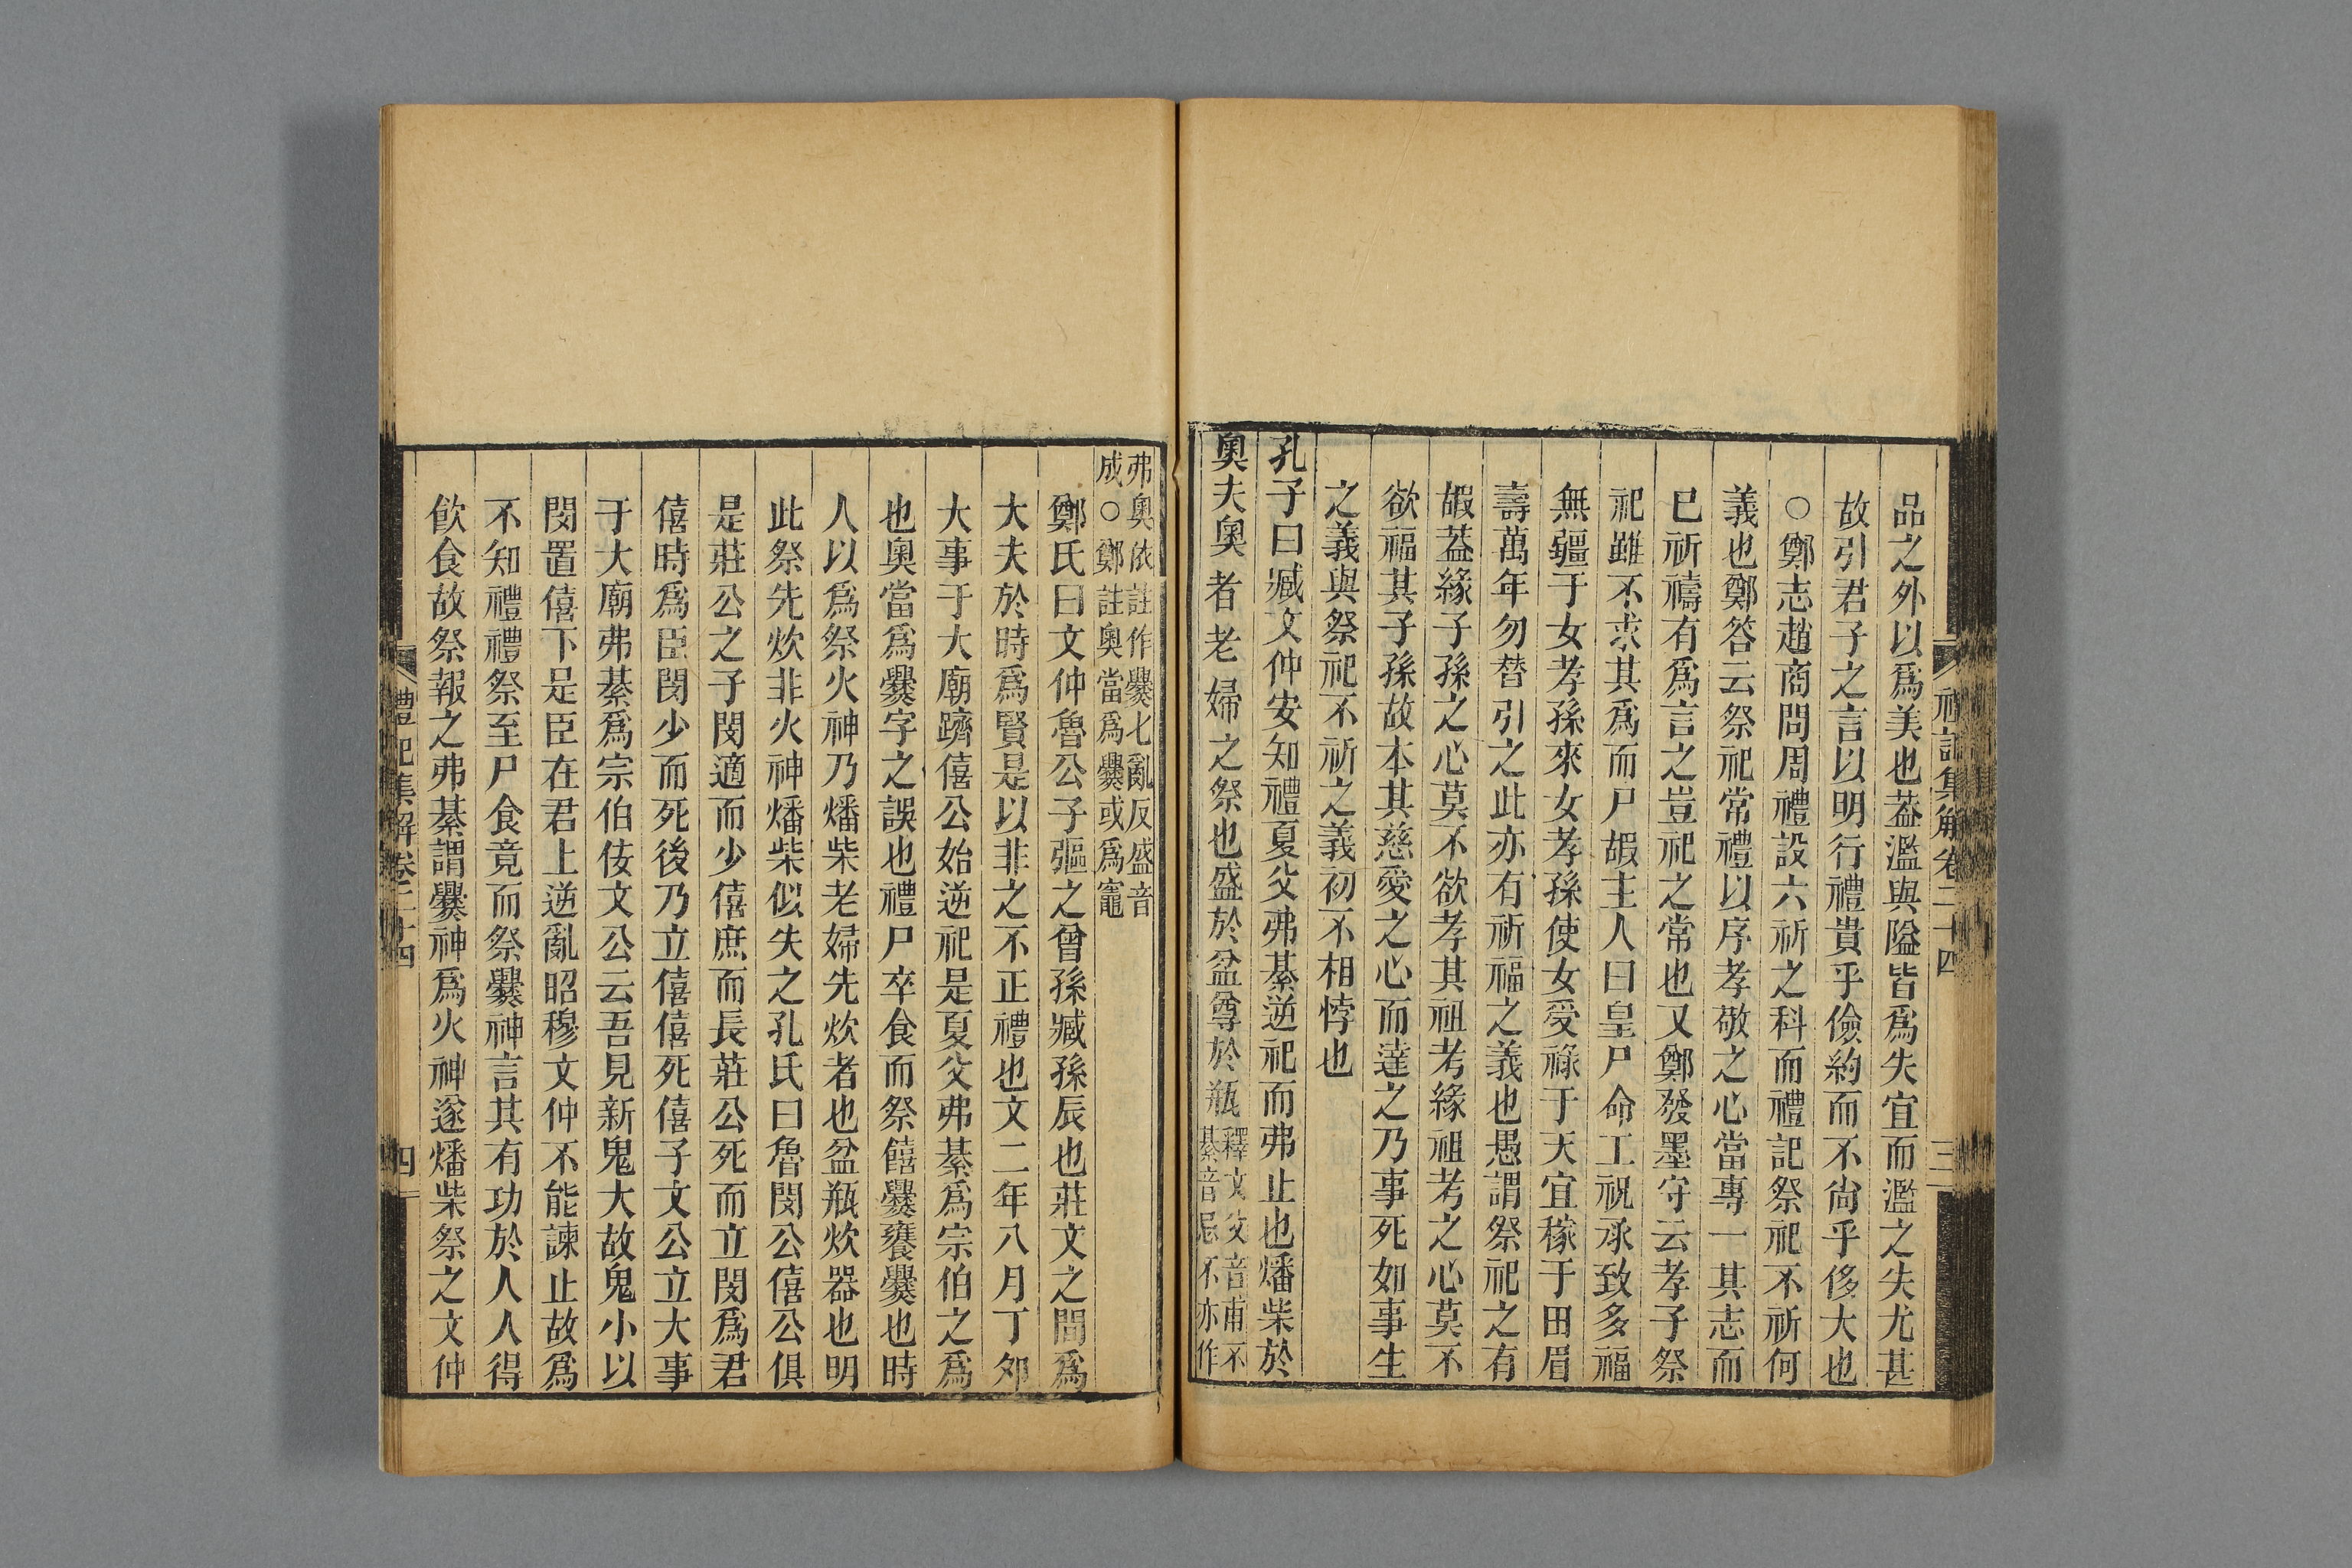 禮記集解卷二十四
三
品之外以爲美也葢濫與隘皆爲失宜而濫之失尤甚
故引君子之言以明行禮貴乎儉約而不尙乎侈大也
○鄭志趙商問周禮設六祈之科而禮記祭祀不祈何
義也鄭答云祭祀常禮以序孝敬之心當專一其志而
已祈禱有爲言之豈祀之常也又鄭發墨守云孝子祭
祀雖不求其爲而尸嘏主人曰皇尸命工祝承致多福
無疆于女孝孫來女孝孫使女受祿于天宜稼于田眉
壽萬年勿替引之此亦有祈福之義也愚謂祭祀之有
嘏葢緣子孫之心莫不欲孝其祖考緣祖考之心莫不
欲福其子孫故本其慈愛之心而達之乃事死如事生
之義與祭祀不祈之義初不相悖也
孔子曰臧文仲安知禮夏父弗綦逆祀而弗止也燔柴於
奧夫奧者老婦之祭也盛於盆尊於瓶釋文父音甫不
綦音忌不亦作
弗奧依註作爨七亂反盛音
成○鄭註奧當爲爨或爲竈
鄭氏曰文仲魯公子彄之曾孫臧孫辰也莊文之間爲
大夫於時爲賢是以非之不正禮也文二年八月丁夘
大事于大廟躋僖公始逆祀是夏父弗綦爲宗伯之爲
也奧當爲爨字之誤也禮尸卒食而祭饎爨饔爨也時
人以爲祭火神乃燔柴老婦先炊者也盆瓶炊器也明
此祭先炊非火神燔柴似失之孔氏曰魯閔公僖公俱
是莊公之子閔適而少僖庶而長莊公死而立閔爲君
僖時爲臣閔少而死後乃立僖僖死僖子文公立大事
于大廟弗綦爲宗伯佞文公云吾見新鬼大故鬼小以
閔置僖下是臣在君上逆亂昭穆文仲不能諫止故爲
不知禮禮祭至尸食竟而祭爨神言其有功於人人得
飮食故祭報之弗綦謂爨神爲火神遂燔柴祭之文仲
禮記集解卷二十四
四